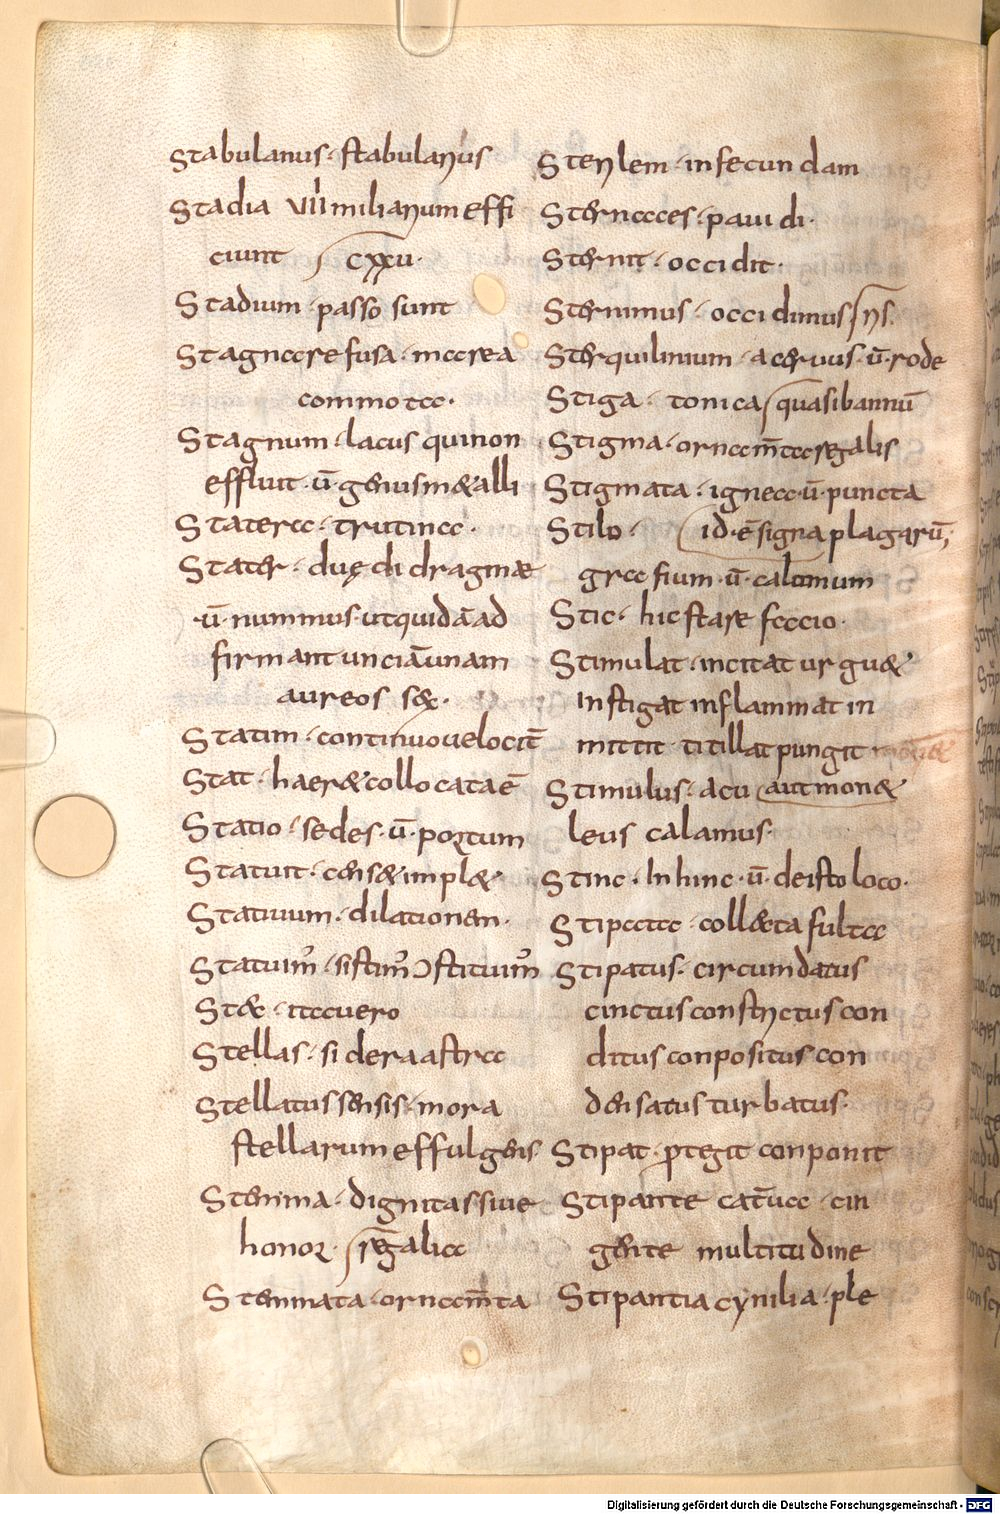 Stabulanus · stabularius
Stadia VIII miliarium effi
ciunt cxxv ·
Stadium · passo sunt
Stagna refusa · in area
commota ·
Stagnum · lacus qui non
effluit · ū · genus metalli
Statera · trutina ·
Stater · duę di dragmæ
ū · nummus · ut quidā ad
firmant unciā unam
aureos s& ·
Statim · continuo uelocit̄
Stat · haer& collocata ē
Statio · sedes · ū · portum
Statuit · cens& impl&
Statiuum · dilationem ·
Statuim̉ · sistim̉ ↄstituim̉
St& · ita uero
Stellas · sidera astra
Stellatus sensis · mora
stellarum effulgens
Stemma · dignitas siue
honor · regalia
Stemmata · ornam̄ta
Sterilem · infecundam
Sternaces · pauidi ·
Sternit · occidit ·
Sternimus · occidimus
Sterquilinium · aceruus · ū · rode
Stiga · tonica quasi bannū
Stigma · ornam̄ta regalis
Stigmata · ignea · ū · puncta
Stilo · id · ē signa plagarū;
grafium · ū · calamum
Stic · hic stare facio ·
Stimulat · incitat urgu&
instigat inflammat in
mittit titillat pungit mou&
Stimulus · acu aut mon&
leus calamus ·
Stinc · In hinc · ū · de isto loco ·
Stipata · collecta fulta
Stipatus · circumdatus
cinctus constrictus con
ditus conpositus con
densatus turbatus ·
Stipat · protegit conponit
Stipante caterua · cin
gente multitudine
Stipantia cynilia · ple
Digitalisierung gefördert durch die Deutsche Forschungsgemeinschaft - DFG